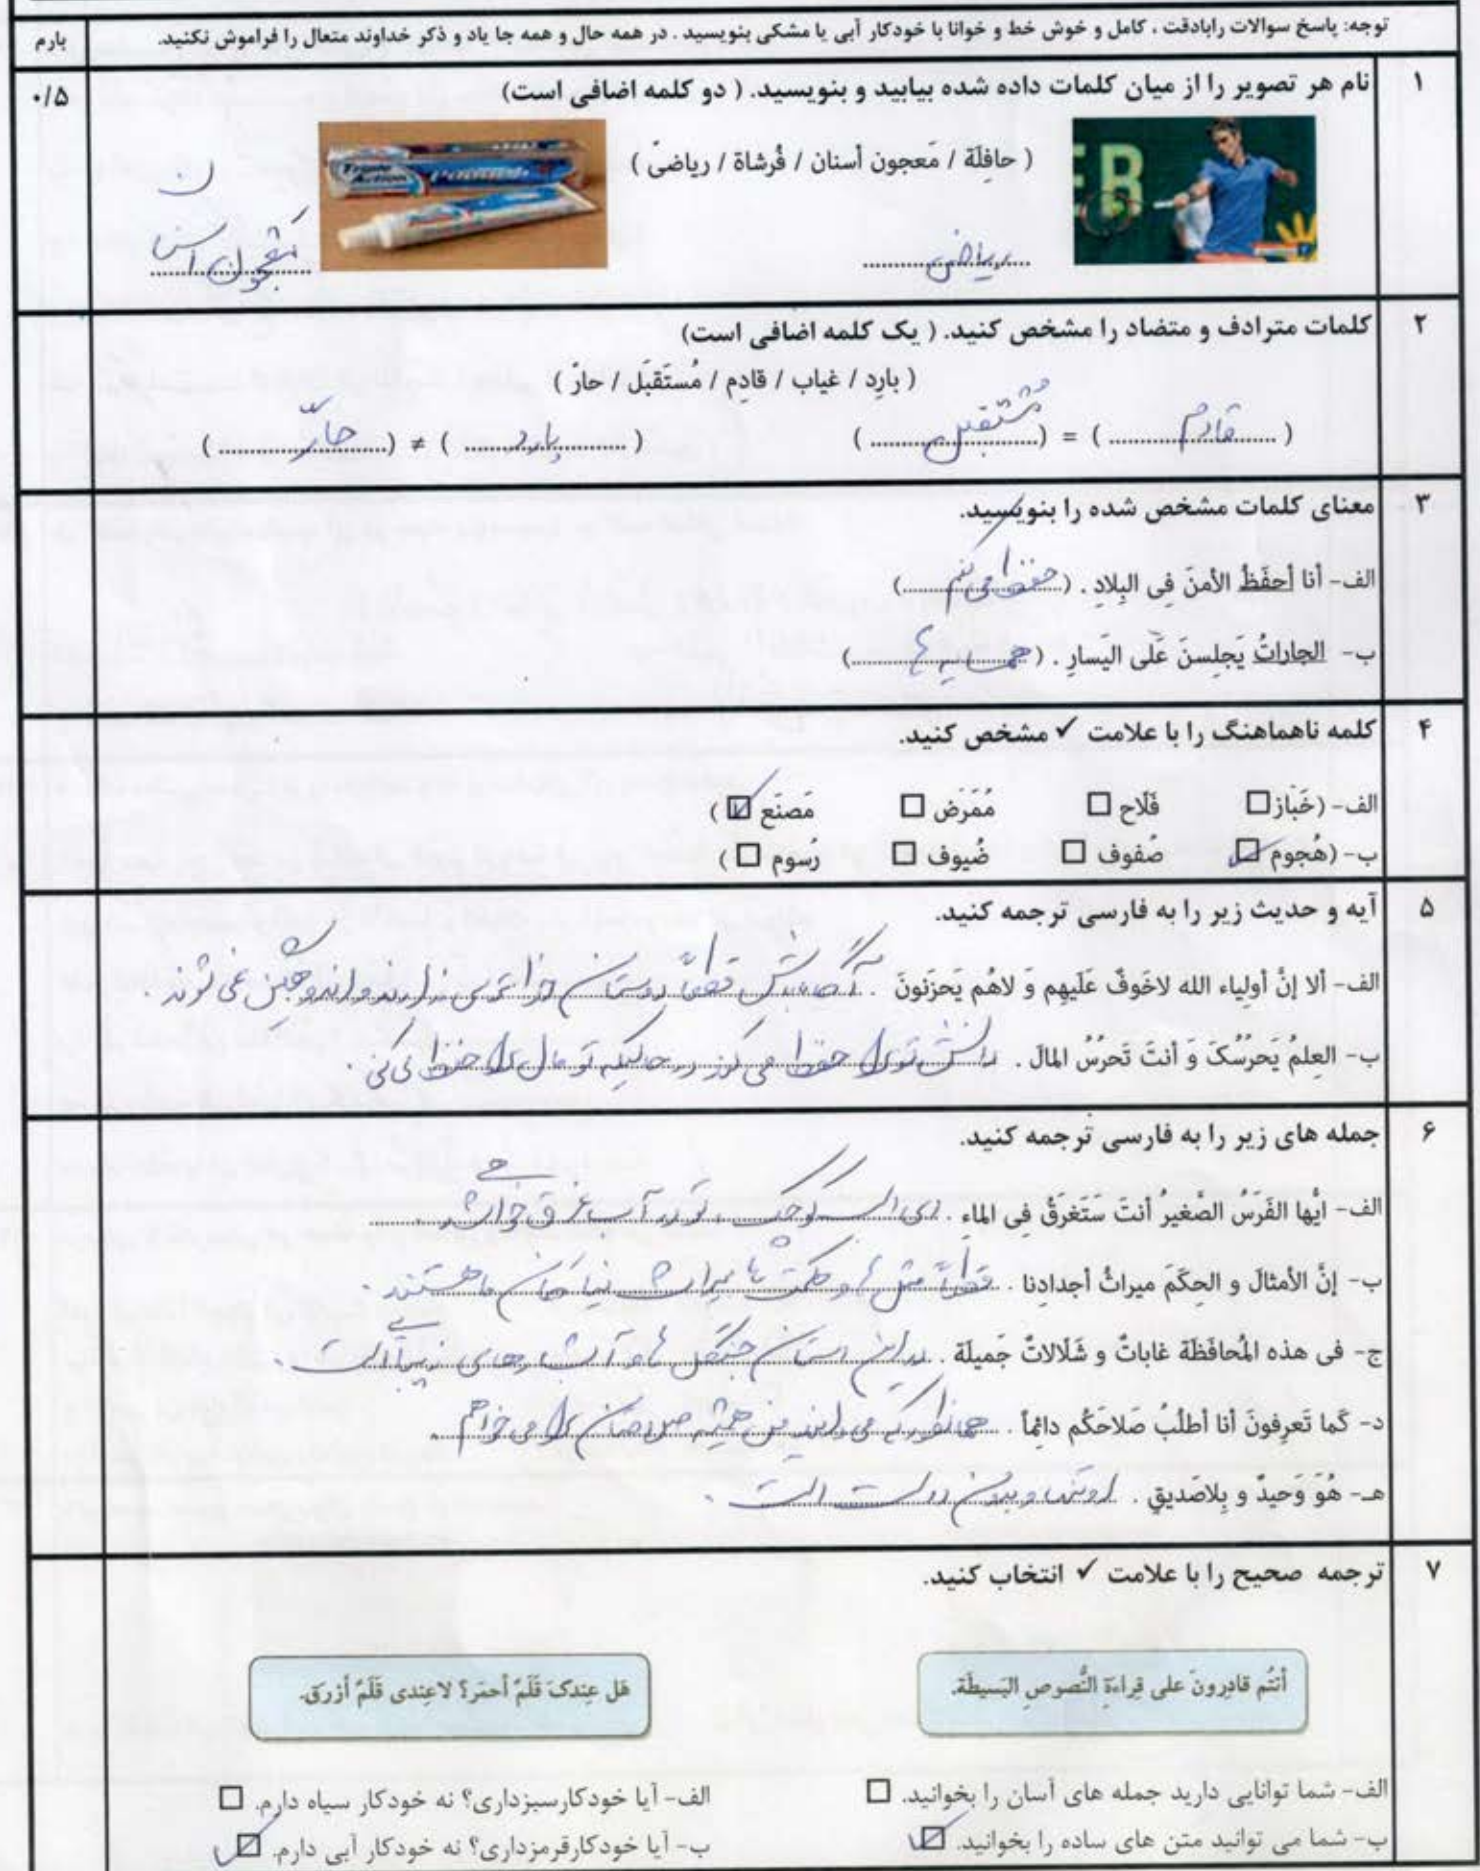 توجه: پاسخ سوالات رابادقت ، کامل و خوش خط و خوانا با خودکار آبی یا مشکی بنویسید . در همه حال و همه جا یاد و ذکر خداوند متعال را فراموش نکنید.
بارم
۱ نام هر تصویر را از میان کلمات داده شده بیابید و بنویسید. ( دو کلمه اضافی است) ۰/۵
( حافِلَة / مَعجون أسنان / فُرشاة / ریاضیّ )
ریاضی
معجون اسنان
۲ کلمات مترادف و متضاد را مشخص کنید. ( یک کلمه اضافی است)
( بارِد / غیاب / قادِم / مُستَقبَل / حارّ )
( قادم ) = ( مُستَقبَل ) ( بارد ) ≠ ( حارّ )
۳ معنای کلمات مشخص شده را بنویسید.
الف- أنا أحفَظُ الأمنَ فِی البِلادِ . ( حفظ می کنم )
ب- الجاراتُ یَجلِسنَ عَلَی الیَسارِ . ( همسایه ها )
۴ کلمه ناهماهنگ را با علامت ✓ مشخص کنید.
الف- (خَبّاز □ فَلّاح □ مُمَرِّض □ مَصنَع ☑ )
ب- (هُجوم ☑ صُفوف □ ضُیوف □ رُسوم □ )
۵ آیه و حدیث زیر را به فارسی ترجمه کنید.
الف- ألا إنَّ أولیاء الله لاخَوفٌ عَلَیهِم وَ لاهُم یَحزَنونَ . آگاه باش قطعاً دوستان خدا ترسی ندارند و اندوهگین نمی شوند .
ب- العِلمُ یَحرُسُکَ وَ أنتَ تَحرُسُ المالَ . دانش تو را حفظ می کند در حالیکه تو مال را حفظ می کنی .
۶ جمله های زیر را به فارسی ترجمه کنید.
الف- ایُّها الفَرَسُ الصَّغیرُ أنتَ سَتَغرَقُ فِی الماءِ . ای اسب کوچک ، تو در آب غرق خواهی شد .
ب- إنَّ الأمثالَ و الحِکَمَ میراثُ أجدادِنا . قطعاً مثل ها و حکمت ها میراث نیاکان ما هستند .
ج- فی هذه المُحافَظَة غاباتٌ و شَلّالاتٌ جَمیلَة . در این استان جنگل ها و آبشارهای زیبایی است .
د- کَما تَعرِفونَ أنا أطلُبُ صَلاحَکُم دائِماً . همانطور که می دانید من همیشه صلاحتان را می خواهم .
هـ- هُوَ وَحیدٌ و بِلاصَدیقٍ . او تنها و بدون دوست است .
۷ ترجمه صحیح را با علامت ✓ انتخاب کنید.
أنتُم قادِرونَ علی قِراءَةِ النُّصوصِ البَسیطَة. هَل عِندَکَ قَلَمٌ أحمَر؟ لاعِندی قَلَمٌ أزرَق.
الف- شما توانایی دارید جمله های آسان را بخوانید. □ الف- آیا خودکارسبزداری؟ نه خودکار سیاه دارم. □
ب- شما می توانید متن های ساده را بخوانید. ☑ ب- آیا خودکارقرمزداری؟ نه خودکار آبی دارم. ☑